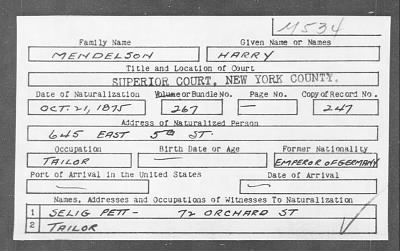 M534
Family Name Given Name or Names
MENDELSON HARRY
Title and Location of Court
SUPERIOR COURT, NEW YORK COUNTY.
Date of Naturalization Volume or Bundle No. Page No. Copy of Record No.
OCT. 21, 1875 267 — 247
Address of Naturalized Person
645 EAST 5TH ST.
Occupation Birth Date or Age Former Nationality
TAILOR — EMPEROR OF GERMANY
Port of Arrival in the United States Date of Arrival
— —
Names, Addresses and Occupations of Witnesses To Naturalization
1 SELIG PETT - 72 ORCHARD ST
2 TAILOR